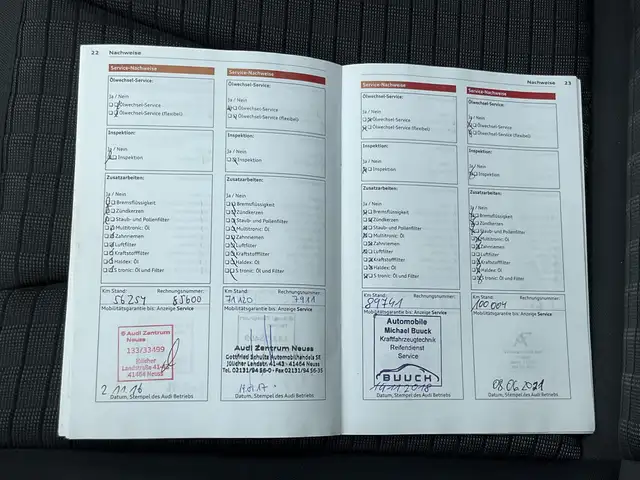 22 Nachweise
Service-Nachweise
Ölwechsel-Service:
Ja / Nein
Ölwechsel-Service
Ölwechsel-Service (flexibel)
Inspektion:
Ja / Nein
Inspektion
Zusatzarbeiten:
Ja / Nein
Bremsflüssigkeit
Zündkerzen
Staub- und Pollenfilter
Multitronic: Öl
Zahnriemen
Luftfilter
Kraftstofffilter
Haldex: Öl
S tronic: Öl und Filter
Km Stand: Rechnungsnummer:
56254 85600
Mobilitätsgarantie bis: Anzeige Service
Audi Zentrum
Neuss
133/33499
Jülicher
Landstraße 41-43
41464 Neuss
2.11.16
Datum, Stempel des Audi Betriebs
Service-Nachweise
Ölwechsel-Service:
Ja / Nein
Ölwechsel-Service
Ölwechsel-Service (flexibel)
Inspektion:
Ja / Nein
Inspektion
Zusatzarbeiten:
Ja / Nein
Bremsflüssigkeit
Zündkerzen
Staub- und Pollenfilter
Multitronic: Öl
Zahnriemen
Luftfilter
Kraftstofffilter
Haldex: Öl
S tronic: Öl und Filter
Km Stand: Rechnungsnummer:
71120 7911
Mobilitätsgarantie bis: Anzeige Service
Audi Zentrum Neuss
Gottfried Schultz Automobilhandels SE
Jülicher Landstr. 41-43 · 41464 Neuss
Tel. 02131/94 56-0 · Fax 02131/94 56-35
Datum, Stempel des Audi Betriebs
Nachweise 23
Service-Nachweise
Ölwechsel-Service:
Ja / Nein
Ölwechsel-Service
Ölwechsel-Service (flexibel)
Inspektion:
Ja / Nein
Inspektion
Zusatzarbeiten:
Ja / Nein
Bremsflüssigkeit
Zündkerzen
Staub- und Pollenfilter
Multitronic: Öl
Zahnriemen
Luftfilter
Kraftstofffilter
Haldex: Öl
S tronic: Öl und Filter
Km Stand: Rechnungsnummer:
89741
Mobilitätsgarantie bis: Anzeige Service
Automobile
Michael Buuck
Kraftfahrzeugtechnik
Reifendienst
Service
BUUCH
14.11.2018
Datum, Stempel des Audi Betriebs
Service-Nachweise
Ölwechsel-Service:
Ja / Nein
Ölwechsel-Service
Ölwechsel-Service (flexibel)
Inspektion:
Ja / Nein
Inspektion
Zusatzarbeiten:
Ja / Nein
Bremsflüssigkeit
Zündkerzen
Staub- und Pollenfilter
Multitronic: Öl
Zahnriemen
Luftfilter
Kraftstofffilter
Haldex: Öl
S tronic: Öl und Filter
Km Stand: Rechnungsnummer:
100004
Mobilitätsgarantie bis: Anzeige Service
08.06.2021
Datum, Stempel des Audi Betriebs